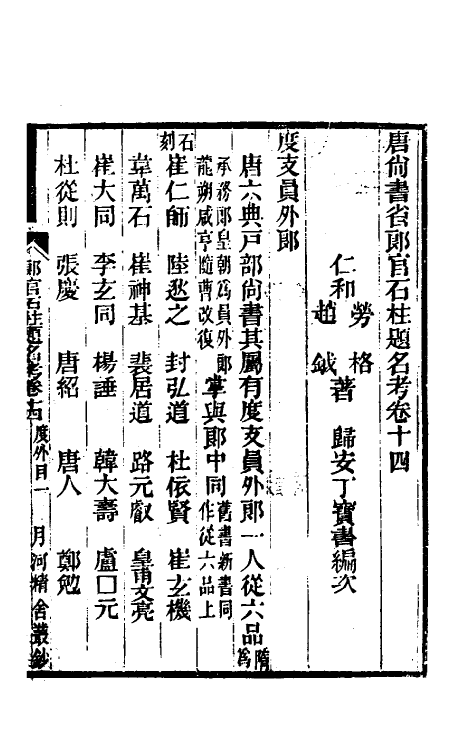 唐尚書省郎官石柱題名考卷十四
仁和 勞格 趙鉞 著 歸安丁寶書編次
度支員外郎
唐六典戸部尚書其屬有度支員外郎一人從六品隋爲
承務郎皇朝爲員外郎龍朔咸亨隨曹改復掌與郎中同舊書新書同作從六品上
石刻
崔仁師 陸𢙀之 封弘道 杜依賢 崔玄機
韋萬石 崔神基 裴居道 路元叡 皇甫文亮
崔大同 李玄同 楊諈 韓大壽 盧口元
杜從則 張慶 唐紹 唐人 鄭勉
郎官石柱題名考卷十四 度外目一 月河精舍叢鈔